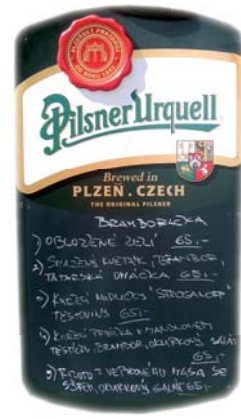 PLZEŇSKÝ PRAZDROJ
Pilsner Urquell
Brewed in
PLZEŇ . CZECH
THE ORIGINAL PILSNER
BRAMBORAČKA
1) OBLOŽENÉ ZELÍ 65,-
2) SMAŽENÝ KVĚTÁK, BRAMBOR,
TATARSKÁ OMÁČKA 65,-
3) KUŘECÍ NUDLIČKY "STROGANOFF"
TĚSTOVINY 65,-
4) KUŘECÍ V MANDLOVÉM
TĚSTÍČKU, BRAMBOR, OKURKOVÝ SALÁT
65,-
5) RIZOTO Z VEPŘOVÉHO MASA SE
SÝREM, OKURKOVÝ SALÁT 65,-